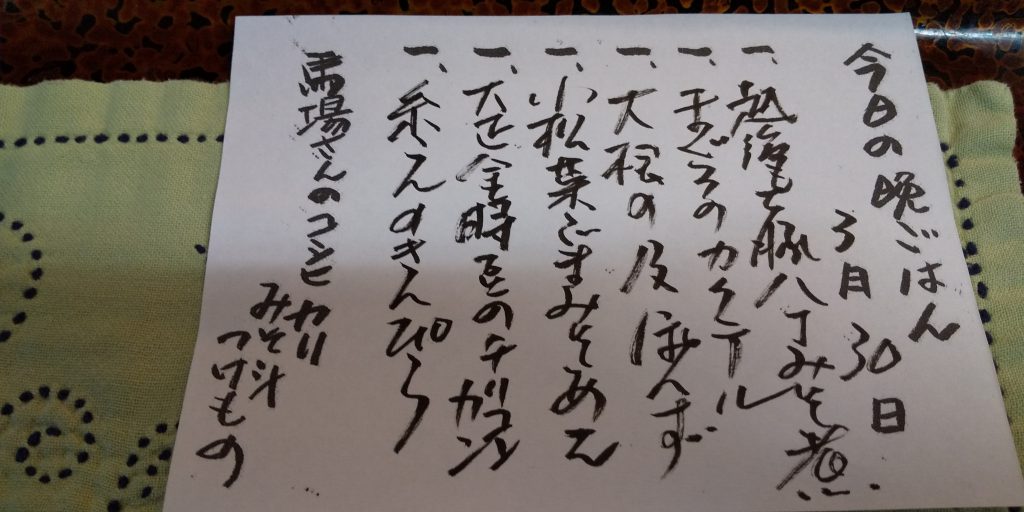 今日の晩ごはん
3月30日
一、越後もち豚八丁みそ煮
一、まぐろのカクテル
一、大根の皮ぽんず
一、小松菜ごまみそあえ
一、大正金時豆のチリコンガン
一、糸こんのきんぴら
馬場さんのコシヒカリ
みそ汁
つけもの